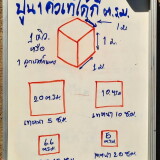 ปูน 1 คิวเทได้กี่ ตร.ม.
1 คิว
หรือ
1 ลูกบาศก์เมตร
1 ม.
1 ม.
1 ม.
20 ตรม
เทหนา 5 ซม.
10 ตรม
เทหนา 10 ซม.
6.6
ตรม
5
ตรม
เทหนา 20 ซม.